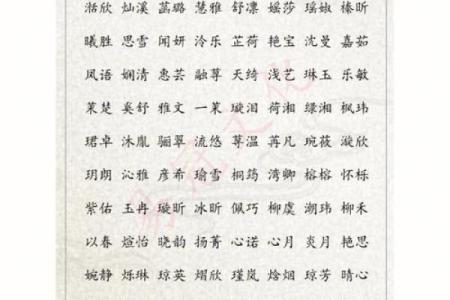 湉欣 灿溪 菡璐 慧雅 舒凛 媱莎 瑶娸 榛昕
曦胜 思雪 闻妍 泠乐 芷荷 艳宝 沈曼 嘉茹
凤语 娴清 惠芸 融荨 天绮 浅艺 琳玉 乐敏
茉楚 奚舒 雅文 一茉 璇泪 荷湘 绿湘 枫玮
珺卓 沐胤 骊翠 流悠 荨温 苒凡 琬薇 漩欣
玥朗 沁雅 彦希 瑜雪 桐筠 湾卿 榕榕 怀栎
紫佑 玉冉 璇昕 冰昕 佩巧 柳虞 潮玮 柳禾
以春 煊怡 晓韵 扬菁 心诺 心月 炎月 艳思
婉静 烁琳 琼英 熠欣 瑾岚 焓烟 琼芳 晴心